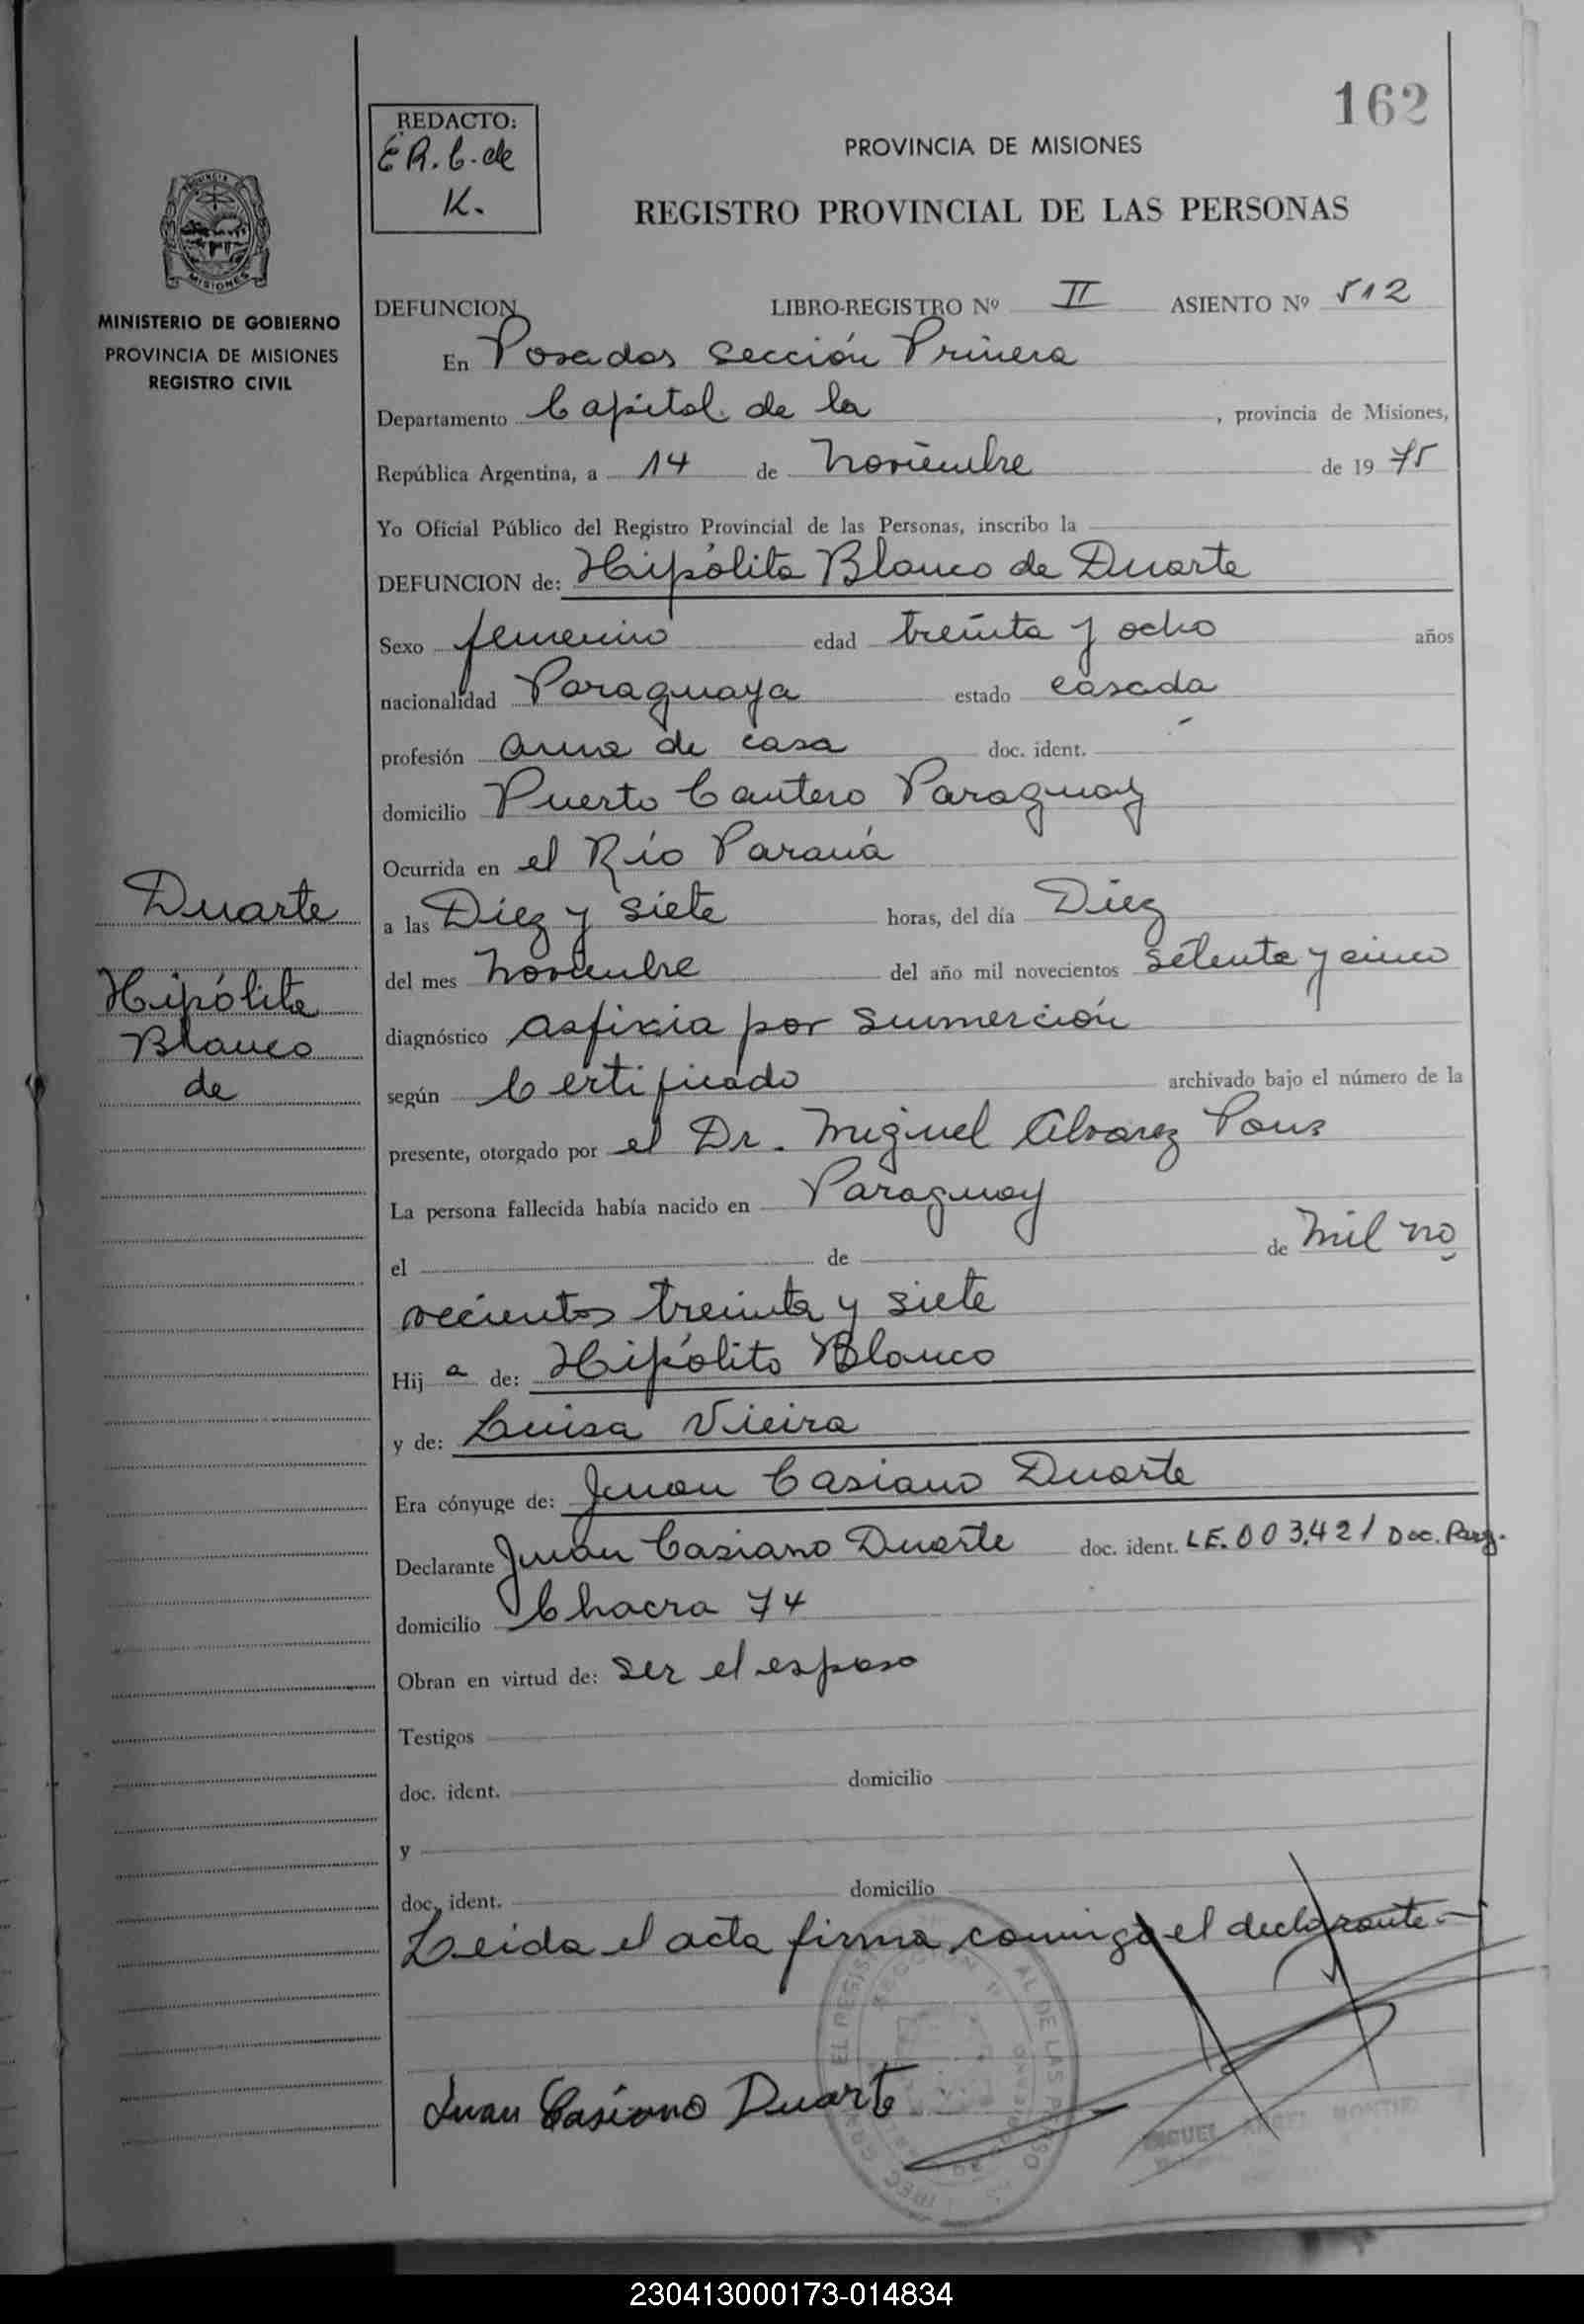 162
REDACTO:
E R. C. de
K.
PROVINCIA DE MISIONES
REGISTRO PROVINCIAL DE LAS PERSONAS
MISIONES
MINISTERIO DE GOBIERNO
PROVINCIA DE MISIONES
REGISTRO CIVIL
DEFUNCION LIBRO-REGISTRO Nº II ASIENTO Nº 512
En Posadas Sección Primera
Departamento Capital de la , provincia de Misiones,
República Argentina, a 14 de Noviembre de 19 75
Yo Oficial Público del Registro Provincial de las Personas, inscribo la
DEFUNCION de: Hipólita Blanco de Duarte
Sexo femenino edad treinta y ocho años
nacionalidad Paraguaya estado casada
profesión ama de casa doc. ident. -
domicilio Puerto Cantero Paraguay
Ocurrida en el Río Paraná
a las Diez y siete horas, del día Diez
del mes Noviembre del año mil novecientos setenta y cinco
diagnóstico asfixia por sumerción
según Certificado archivado bajo el número de la
presente, otorgado por el Dr. Miguel Alvarez Pons
La persona fallecida había nacido en Paraguay
el de de mil no
vecientos treinta y siete
Hij a de: Hipólito Blanco
y de: Luisa Vieira
Era cónyuge de: Juan Casiano Duarte
Declarante Juan Casiano Duarte doc. ident. LE. 003.421 Doc. Parg.
domicilio Chacra 74
Obran en virtud de: ser el esposo
Testigos
doc. ident. domicilio
y
doc. ident. domicilio
Leida el acta firma conmigo el declarante
Juan Casiano Duarte
Duarte
Hipólita
Blanco
de
MIGUEL ANGEL
230413000173-014834